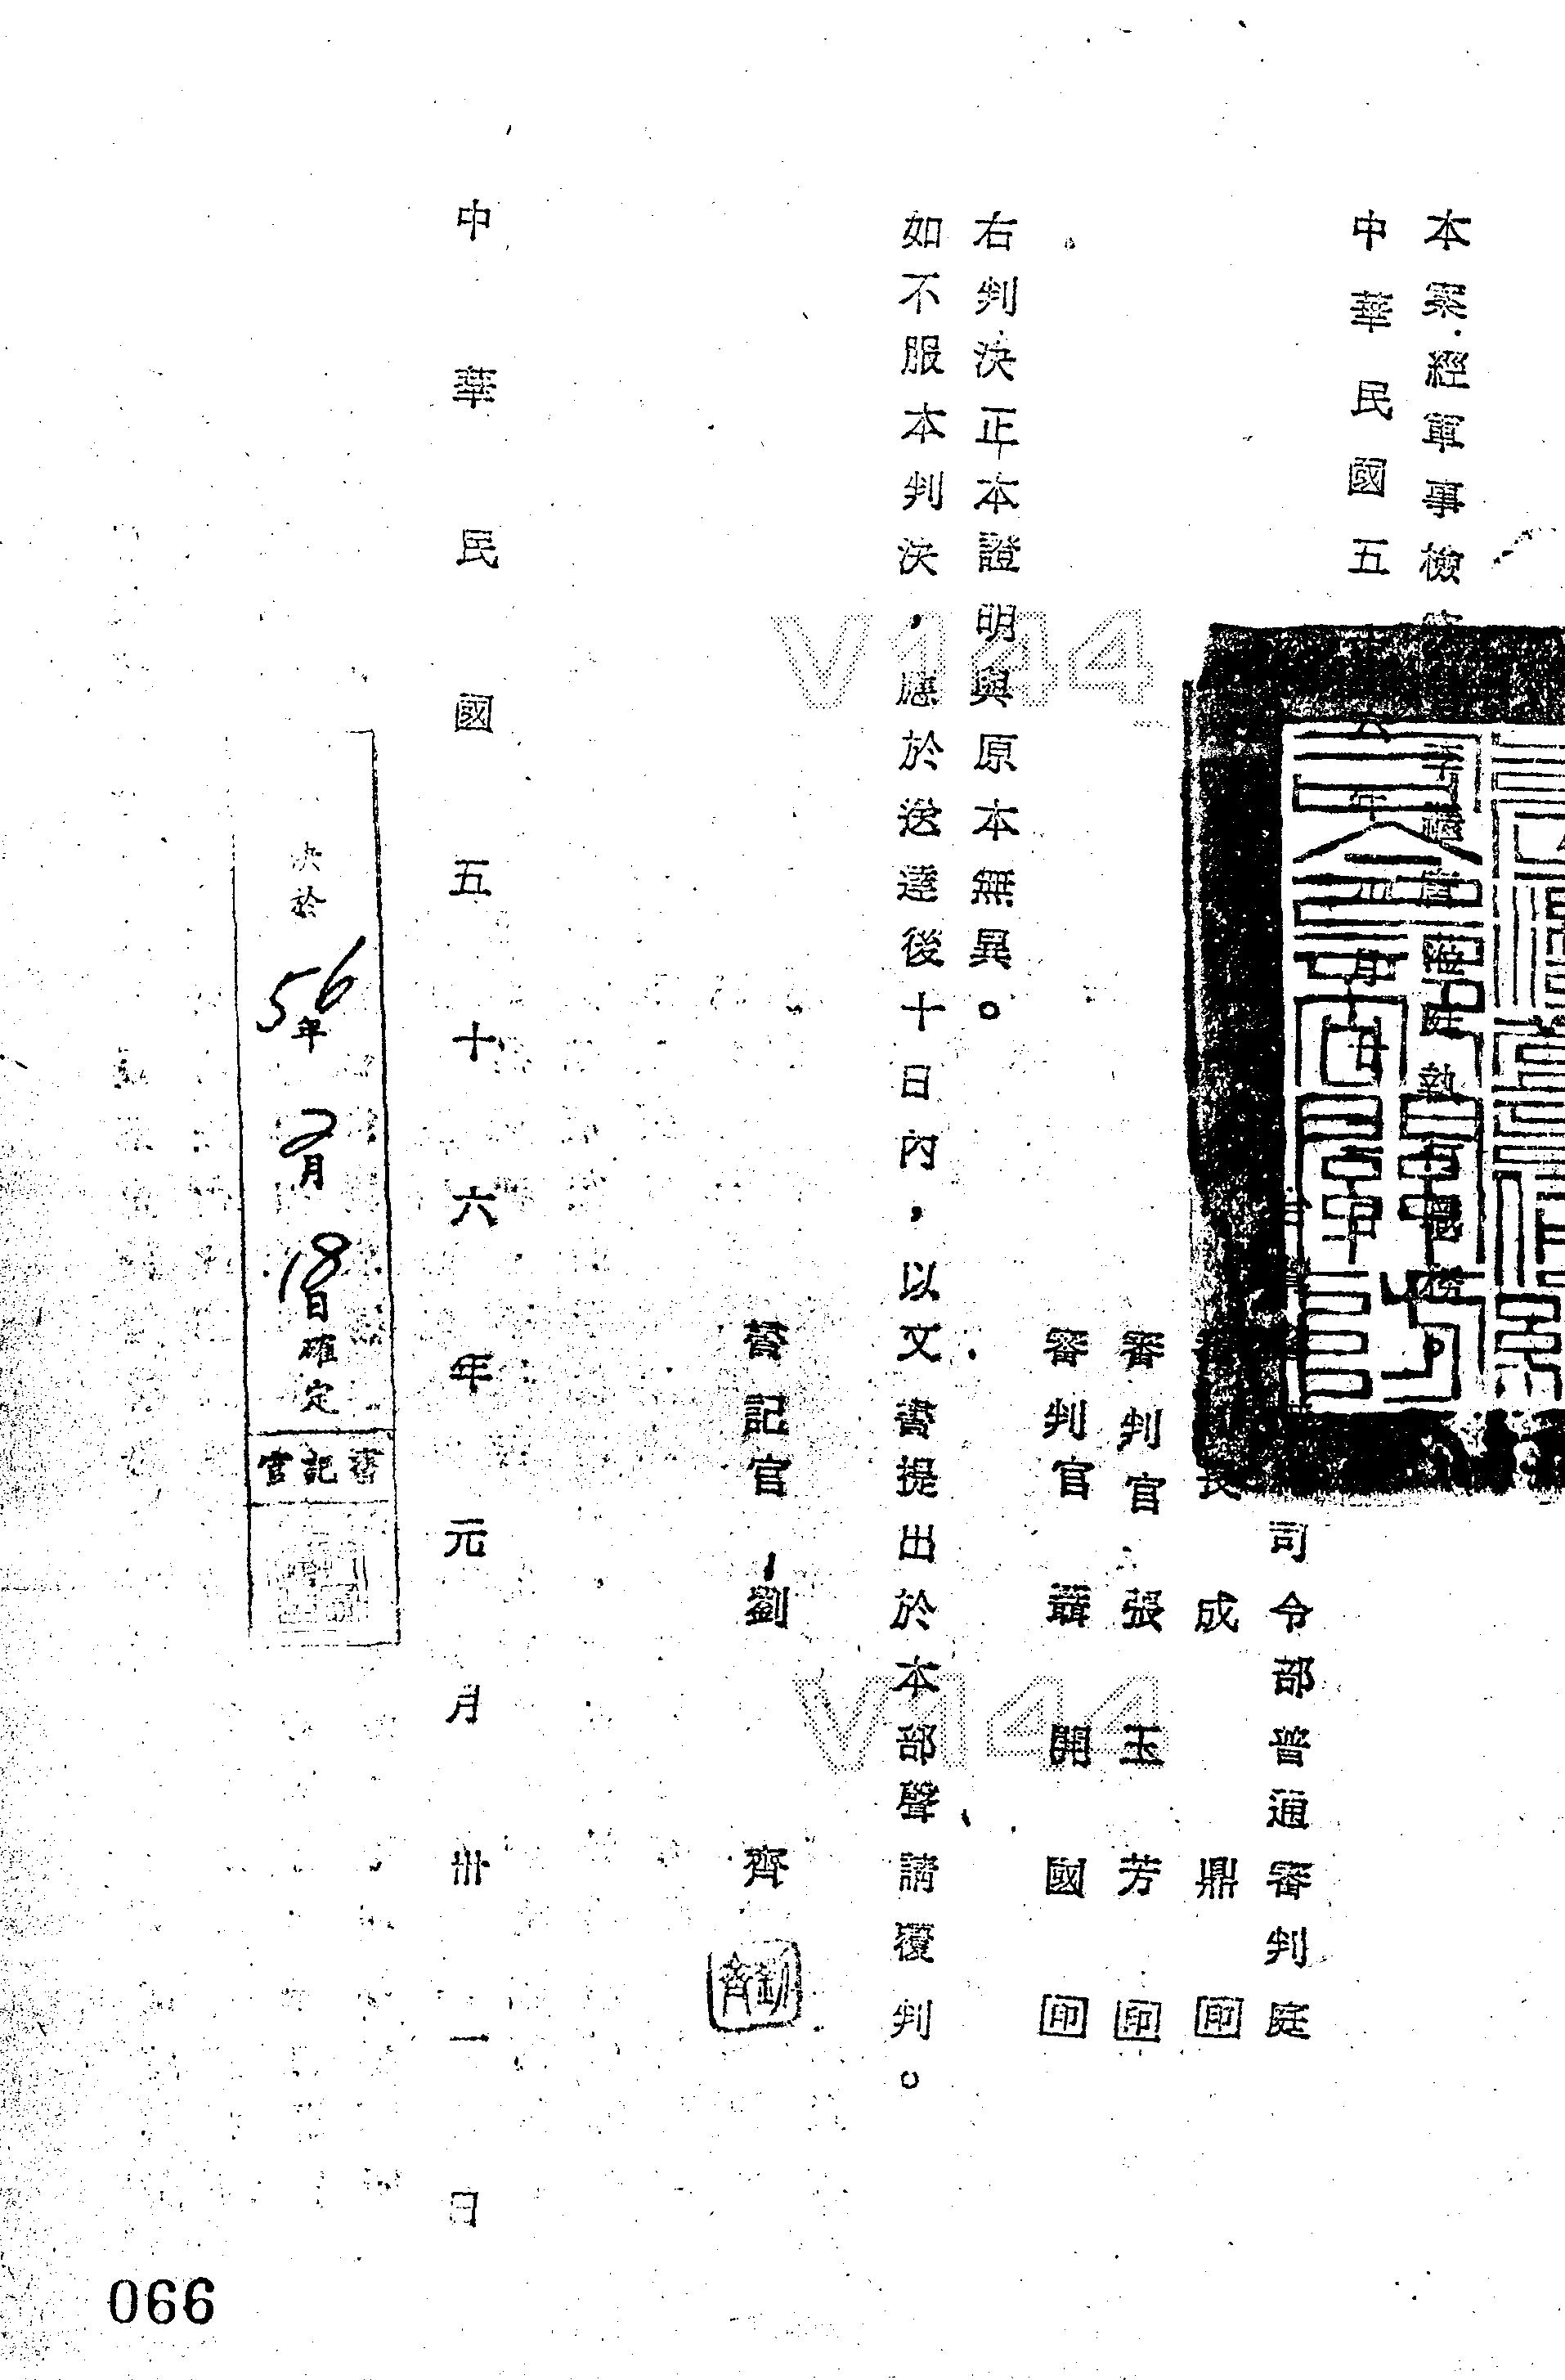 本案經軍事檢察官李禧唐蒞庭執行職務。
中華民國五十六年元月廿日
司令部普通審判庭
長 成鼎 印
審判官 張玉芳 印
審判官 聶開國 印
右判決正本證明與原本無異。
如不服本判決，應於送達後十日內，以文書提出於本部聲請覆判。
書記官 劉齊
劉齊
中華民國五十六年元月卅一日
決於56年2月18日確定
書記官
V144
V144
066